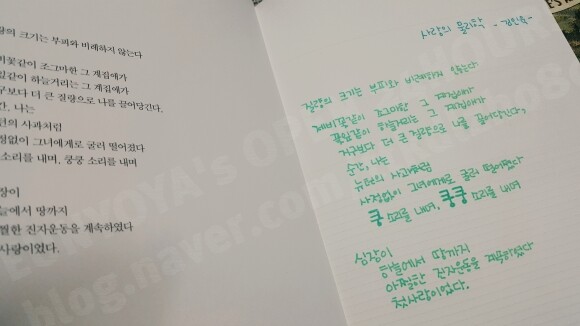 량의 크기는 부피와 비례하지 않는다
비꽃같이 조그마한 그 계집애가
잎같이 하늘거리는 그 계집애가
구보다 더 큰 질량으로 나를 끌어당긴다.
간, 나는
턴의 사과처럼
정없이 그녀에게로 굴러 떨어졌다
소리를 내며, 쿵쿵 소리를 내며
장이
늘에서 땅까지
찔한 진자운동을 계속하였다
사랑이었다.
사랑의 물리학 -김인육-
질량의 크기는 부피와 비례하지 않는다
제비꽃같이 조그마한 그 계집애가
꽃잎같이 하늘거리는 그 계집애가
지구보다 더 큰 질량으로 나를 끌어당긴다.
순간, 나는
뉴턴의 사과처럼
사정없이 그녀에게로 굴러 떨어졌다
쿵 소리를 내며, 쿵쿵 소리를 내며
심장이
하늘에서 땅까지
아찔한 진자운동을 계속하였다
첫사랑이었다.
blog.naver.com